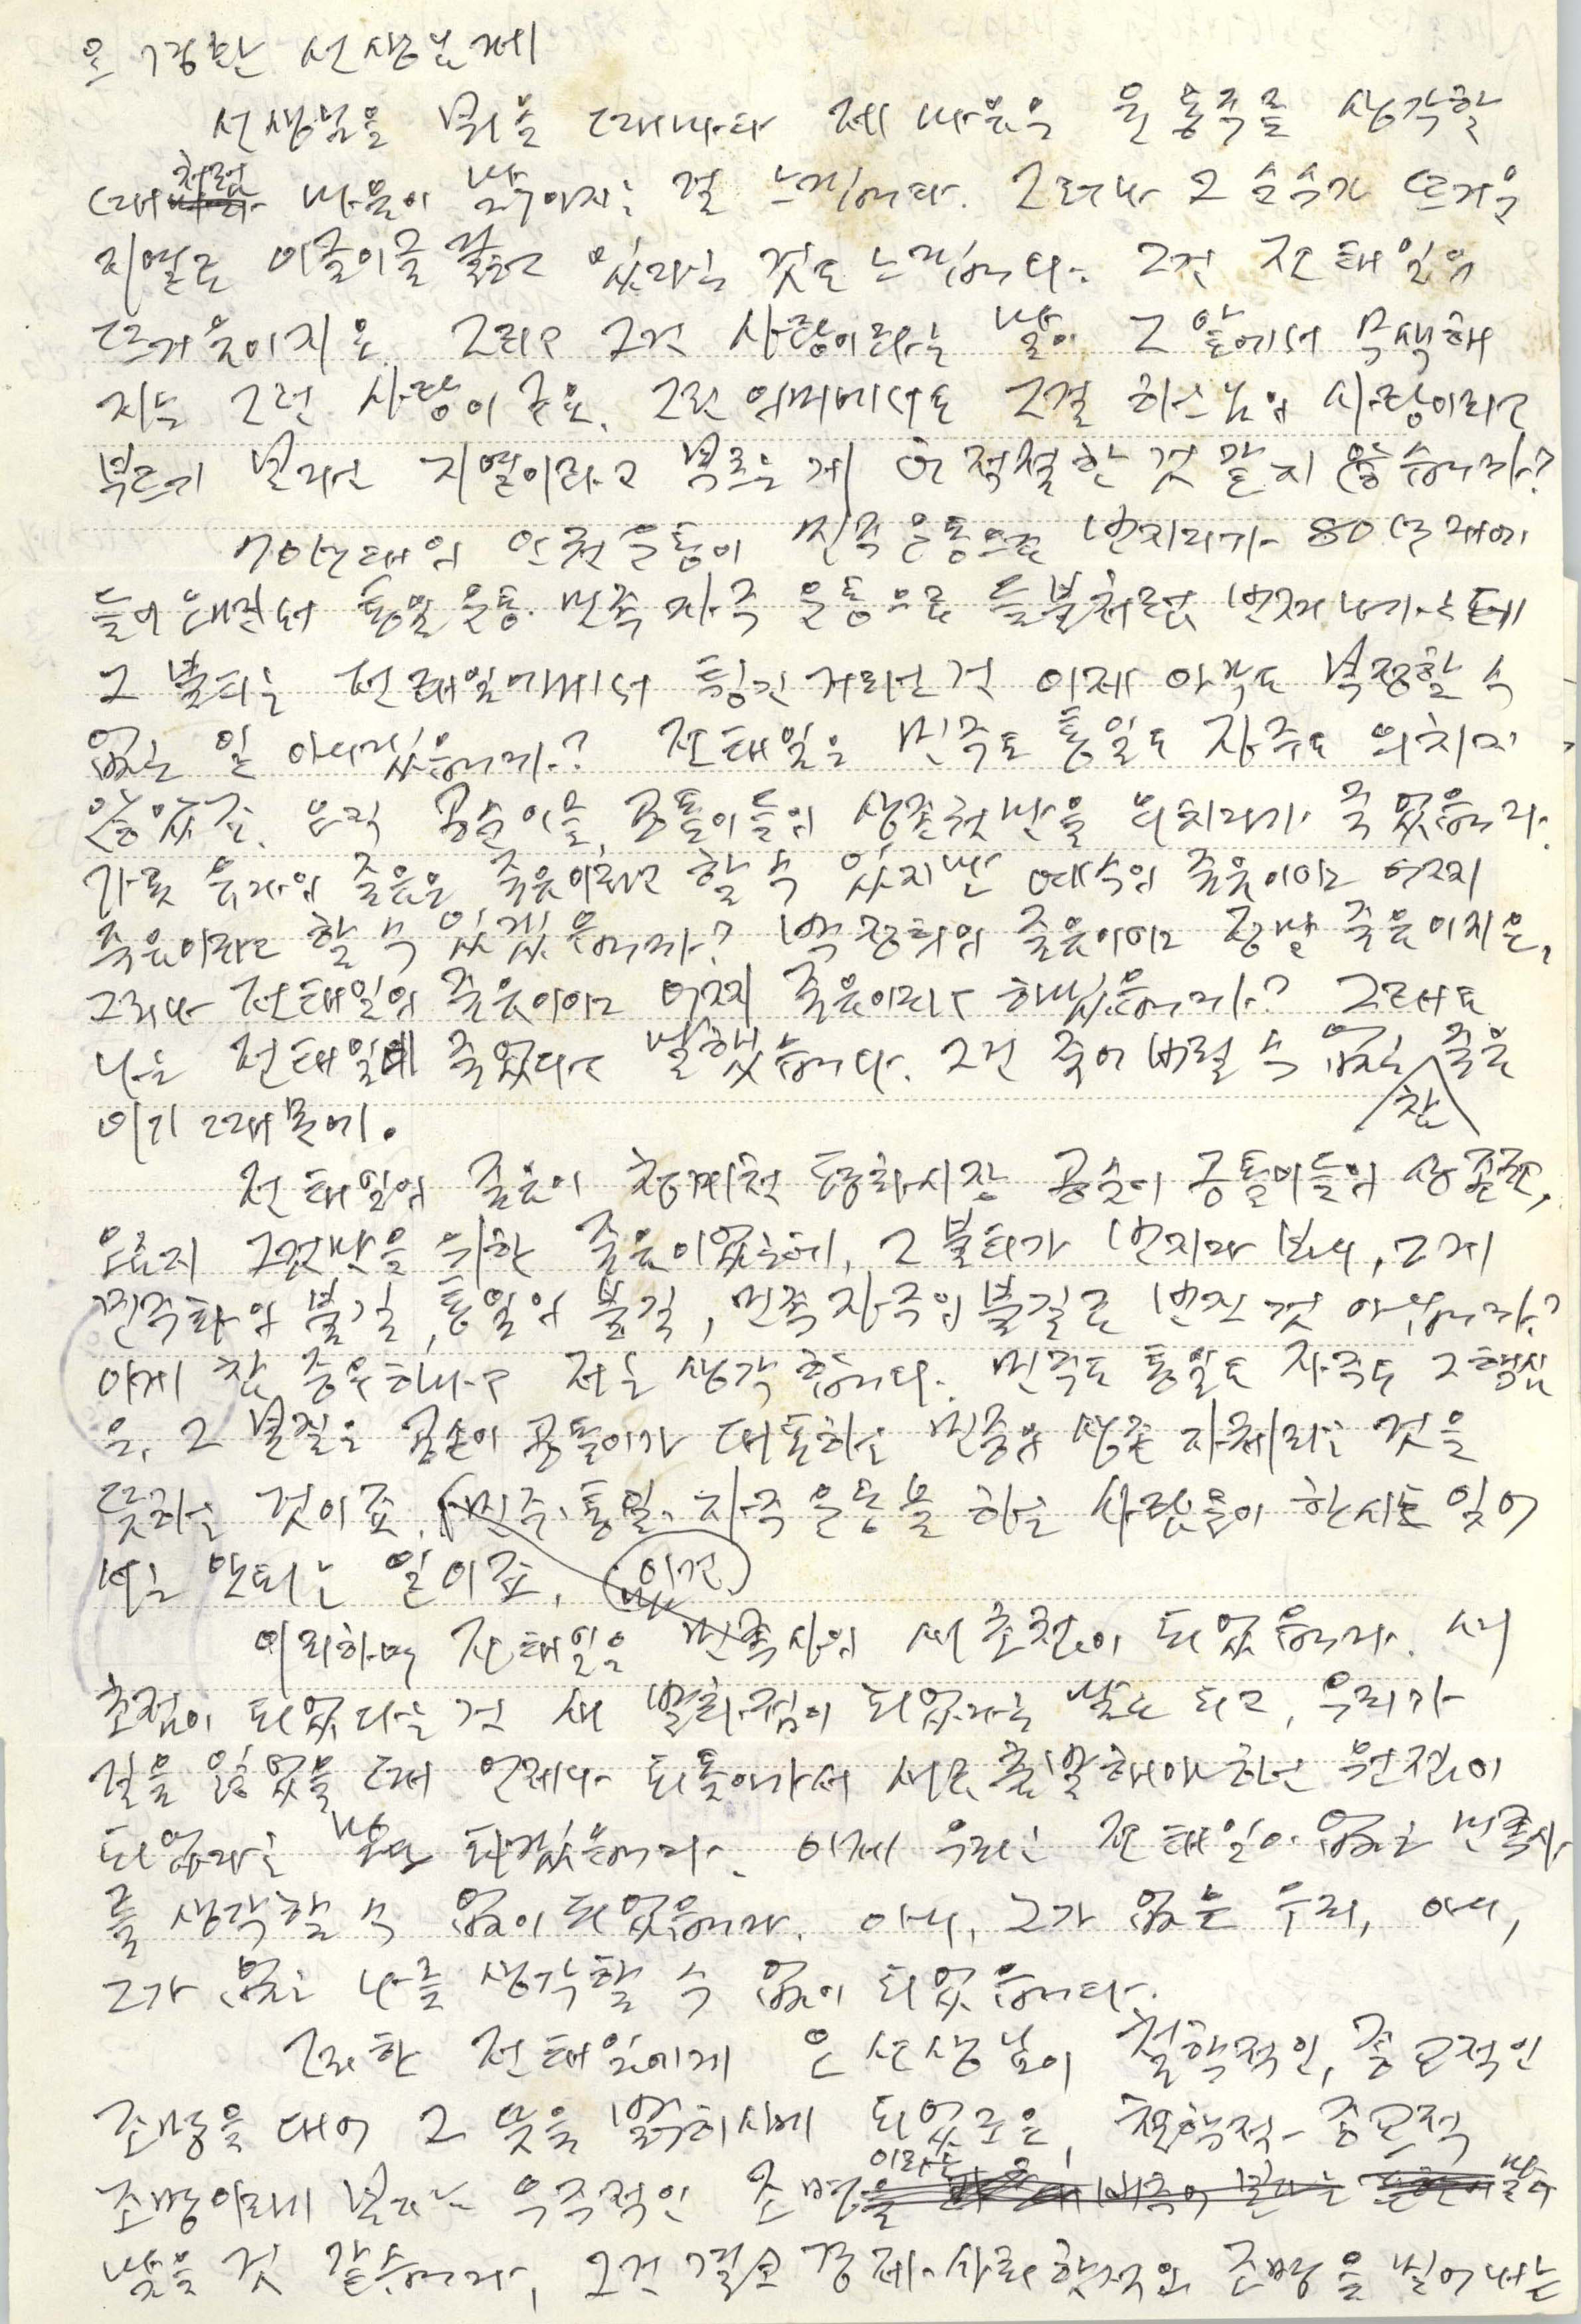 오경환 선생님께
선생님을 뵈올 때마다 제 마음은 윤동주를 생각할
때처럼 마음이 맑아지는 걸 느낍니다. 그러나 그 순수가 뜨거운
지열로 이글이글 끓고 있다는 것도 느낍니다. 그건 전태일의
뜨거움이지요. 그리고 그건 사랑이라는 말이 그 앞에서 무색해
지는 그런 사랑이구요. 그런 의미에서도 그걸 하느님의 사랑이라고
부르기 보다는 지열이라고 부르는 게 더 적절한 것 같지 않습니까?
70년대의 인권운동이 민주운동으로 번지더니 80년대에
들어오면서 통일운동·민족자주운동으로 들불처럼 번져나가는데
그 불티는 전태일에게서 튕긴 거라는 것 이제 아무도 부정할 수
없는 일 아니겠습니까? 전태일은 민주도 통일도 자주도 외치지
않았죠. 오직 공순이들, 공돌이들의 생존권만을 외치다가 죽었습니다.
가롯 유다의 죽음은 죽음이라고 할 수 있지만 예수의 죽음이야 어찌
죽음이라고 할 수 있겠습니까? 박정희의 죽음이야 정말 죽음이지요.
그러나 전태일의 죽음이야 어찌 죽음이라 하겠습니까? 그래도
나는 전태일이 죽었다고 말했습니다. 그건 죽어 버릴 수 없는 참 죽음
이기 때문에.
전태일의 죽음이 청계천 평화시장 공순이 공돌이들의 생존권,
오로지 그것만을 위한 죽음이었는데, 그 불티가 번지다 보니, 그게
민주화의 불길, 통일의 불길, 민족자주의 불길로 번진 것 아닙니까?
이게 참 중요하다고 저는 생각합니다. 민주도 통일도 자주도 그 핵심
은, 그 본질은 공순이 공돌이가 대표하는 민중의 생존 자체라는 것을
뜻하는 것이죠. (이건) 민주·통일·자주 운동을 하는 사람들이 한시도 잊어
서는 안되는 일이죠.
이리하여 전태일은 민족사의 새 초점이 되었습니다. 새
초점이 되었다는 건 새 발화점이 되었다는 말도 되고, 우리가
길을 잃었을 때 언제나 되돌아가서 새로 출발해야 하는 원점이
되었다는 말도 되겠습니다. 이제 우리는 전태일이 없는 민족사
를 생각할 수 없이 되었습니다. 아니, 그가 없는 우리, 아니,
그가 없는 나를 생각할 수 없이 되었습니다.
그러한 전태일에게 오 선생님이 철학적인, 종교적인
조명을 대어 그 뜻을 밝히시게 되었군요. 철학적·종교적
조명이라기 보다는 우주적인 조명이라는 말이
맞을 것 같습니다. 그건 결코 경제·사회학적인 조명을 밀어내는